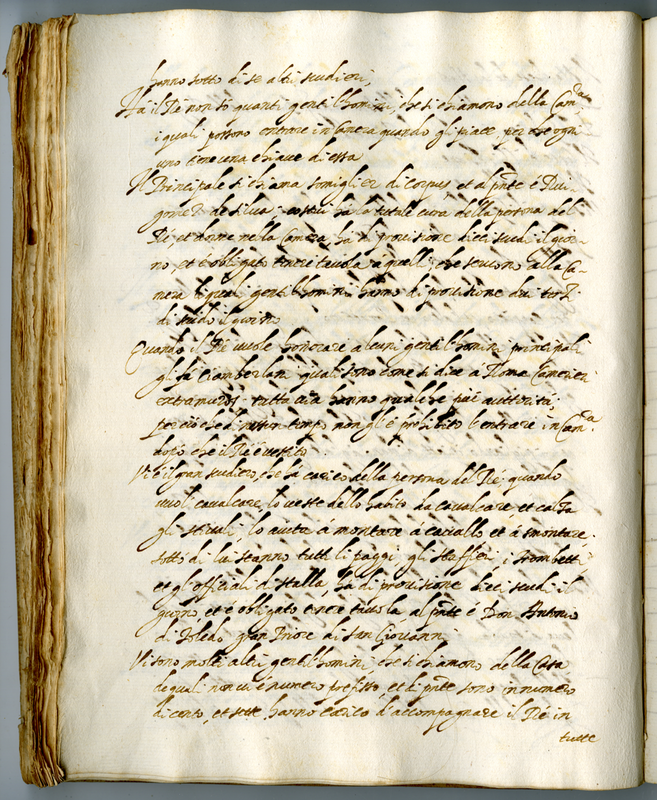 hanno sotto di se altri scudieri,
Hà il Rè non sò quanti gentilhomini, che si chiamono della Cam.ra
i quali possono entrare in Camera quando gli piace, perche ogni
uno tiene una chiave di essa
Il Principale si chiama somiglier di corpus, et al pñte è Rui-
gomez de Silva, costui ha la totale cura della persona del
Rè, et dorme nella Camera, ha di provisione dieci scudi il gior-
no, et è obligato tenere tavola à quelli che servono alla Ca-
mera li quali gentilhomini hanno di provisione dui terzi
di scudo il giorno
Quando il Rè vuole honorare alcuni gentilhomini principali
gli fà Ciamberlani quali sono come si dice a Roma Camerieri
extramuros tutta via hanno qualche più auttorità,
percioche d'niun tempo non gli è prohibito l'entrare in Cam.ra
dopò che il Rè è vestito
Vi è il gran scudiero, che hà carico della persona del Rè, quando
vuol cavalcare, lo veste dello habito da cavalcare, et calza
gli stivali, lo aiuta à montare à cavallo et à smontare.
sotto di lui stanno tutti li paggi, gli staffieri, i Trombetti
et gl'officiali di stalla, ha di provisione dieci scudi il
giorno, et è obligato tenere tavola al pñte è Don Antonio
di Toledo gran Priore di San Giovanni
Vi sono molti altri gentilhomini che si chiamono della Casa
de quali non vi è numero prefisso, et di pñte sono in numero
di cento, et sette, hanno carico d'accompagnare il Rè in
tutte